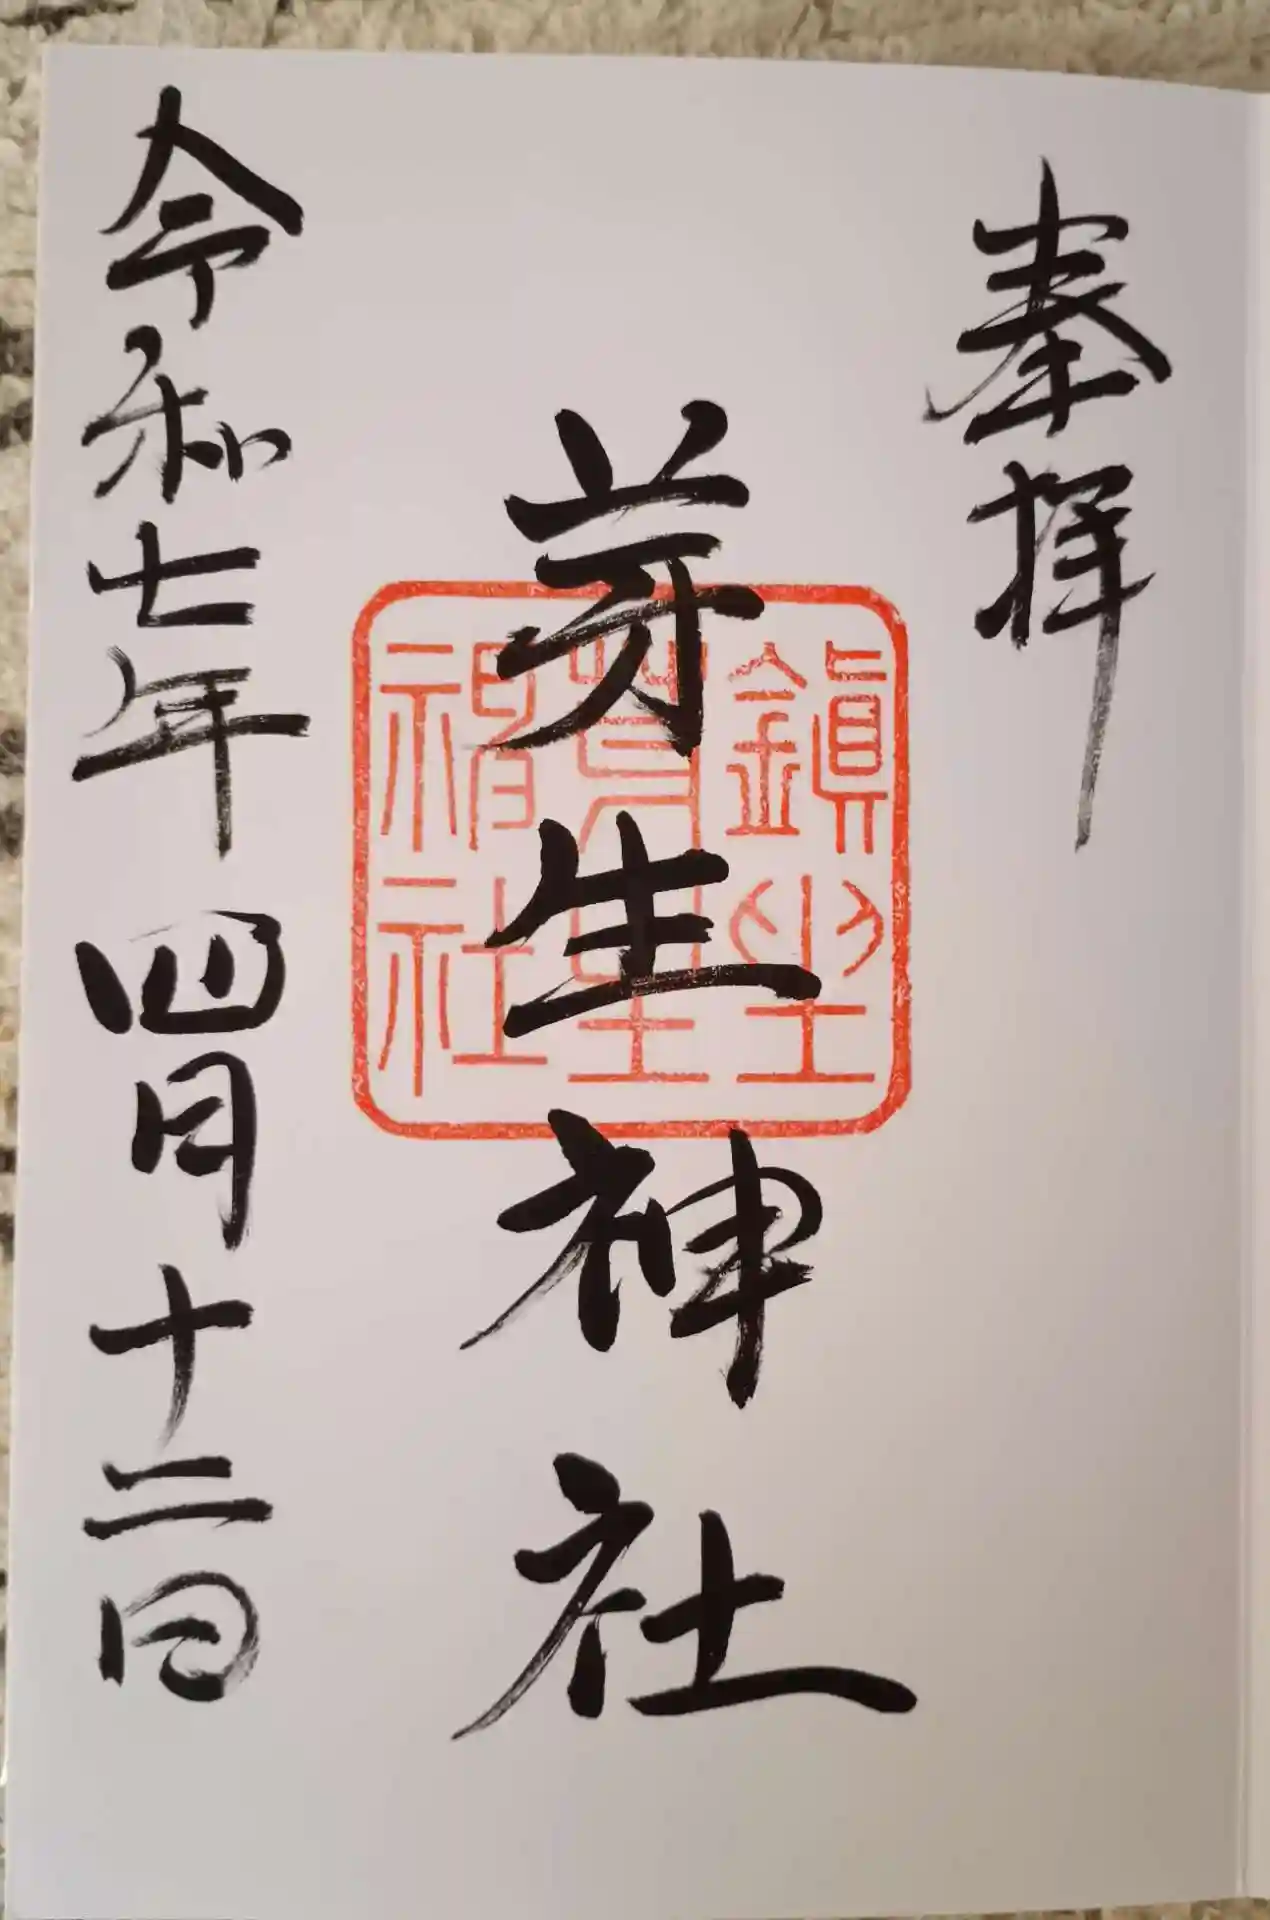 奉拝
芽生神社
鎭坐
芽生
神社
令和七年四月十二日